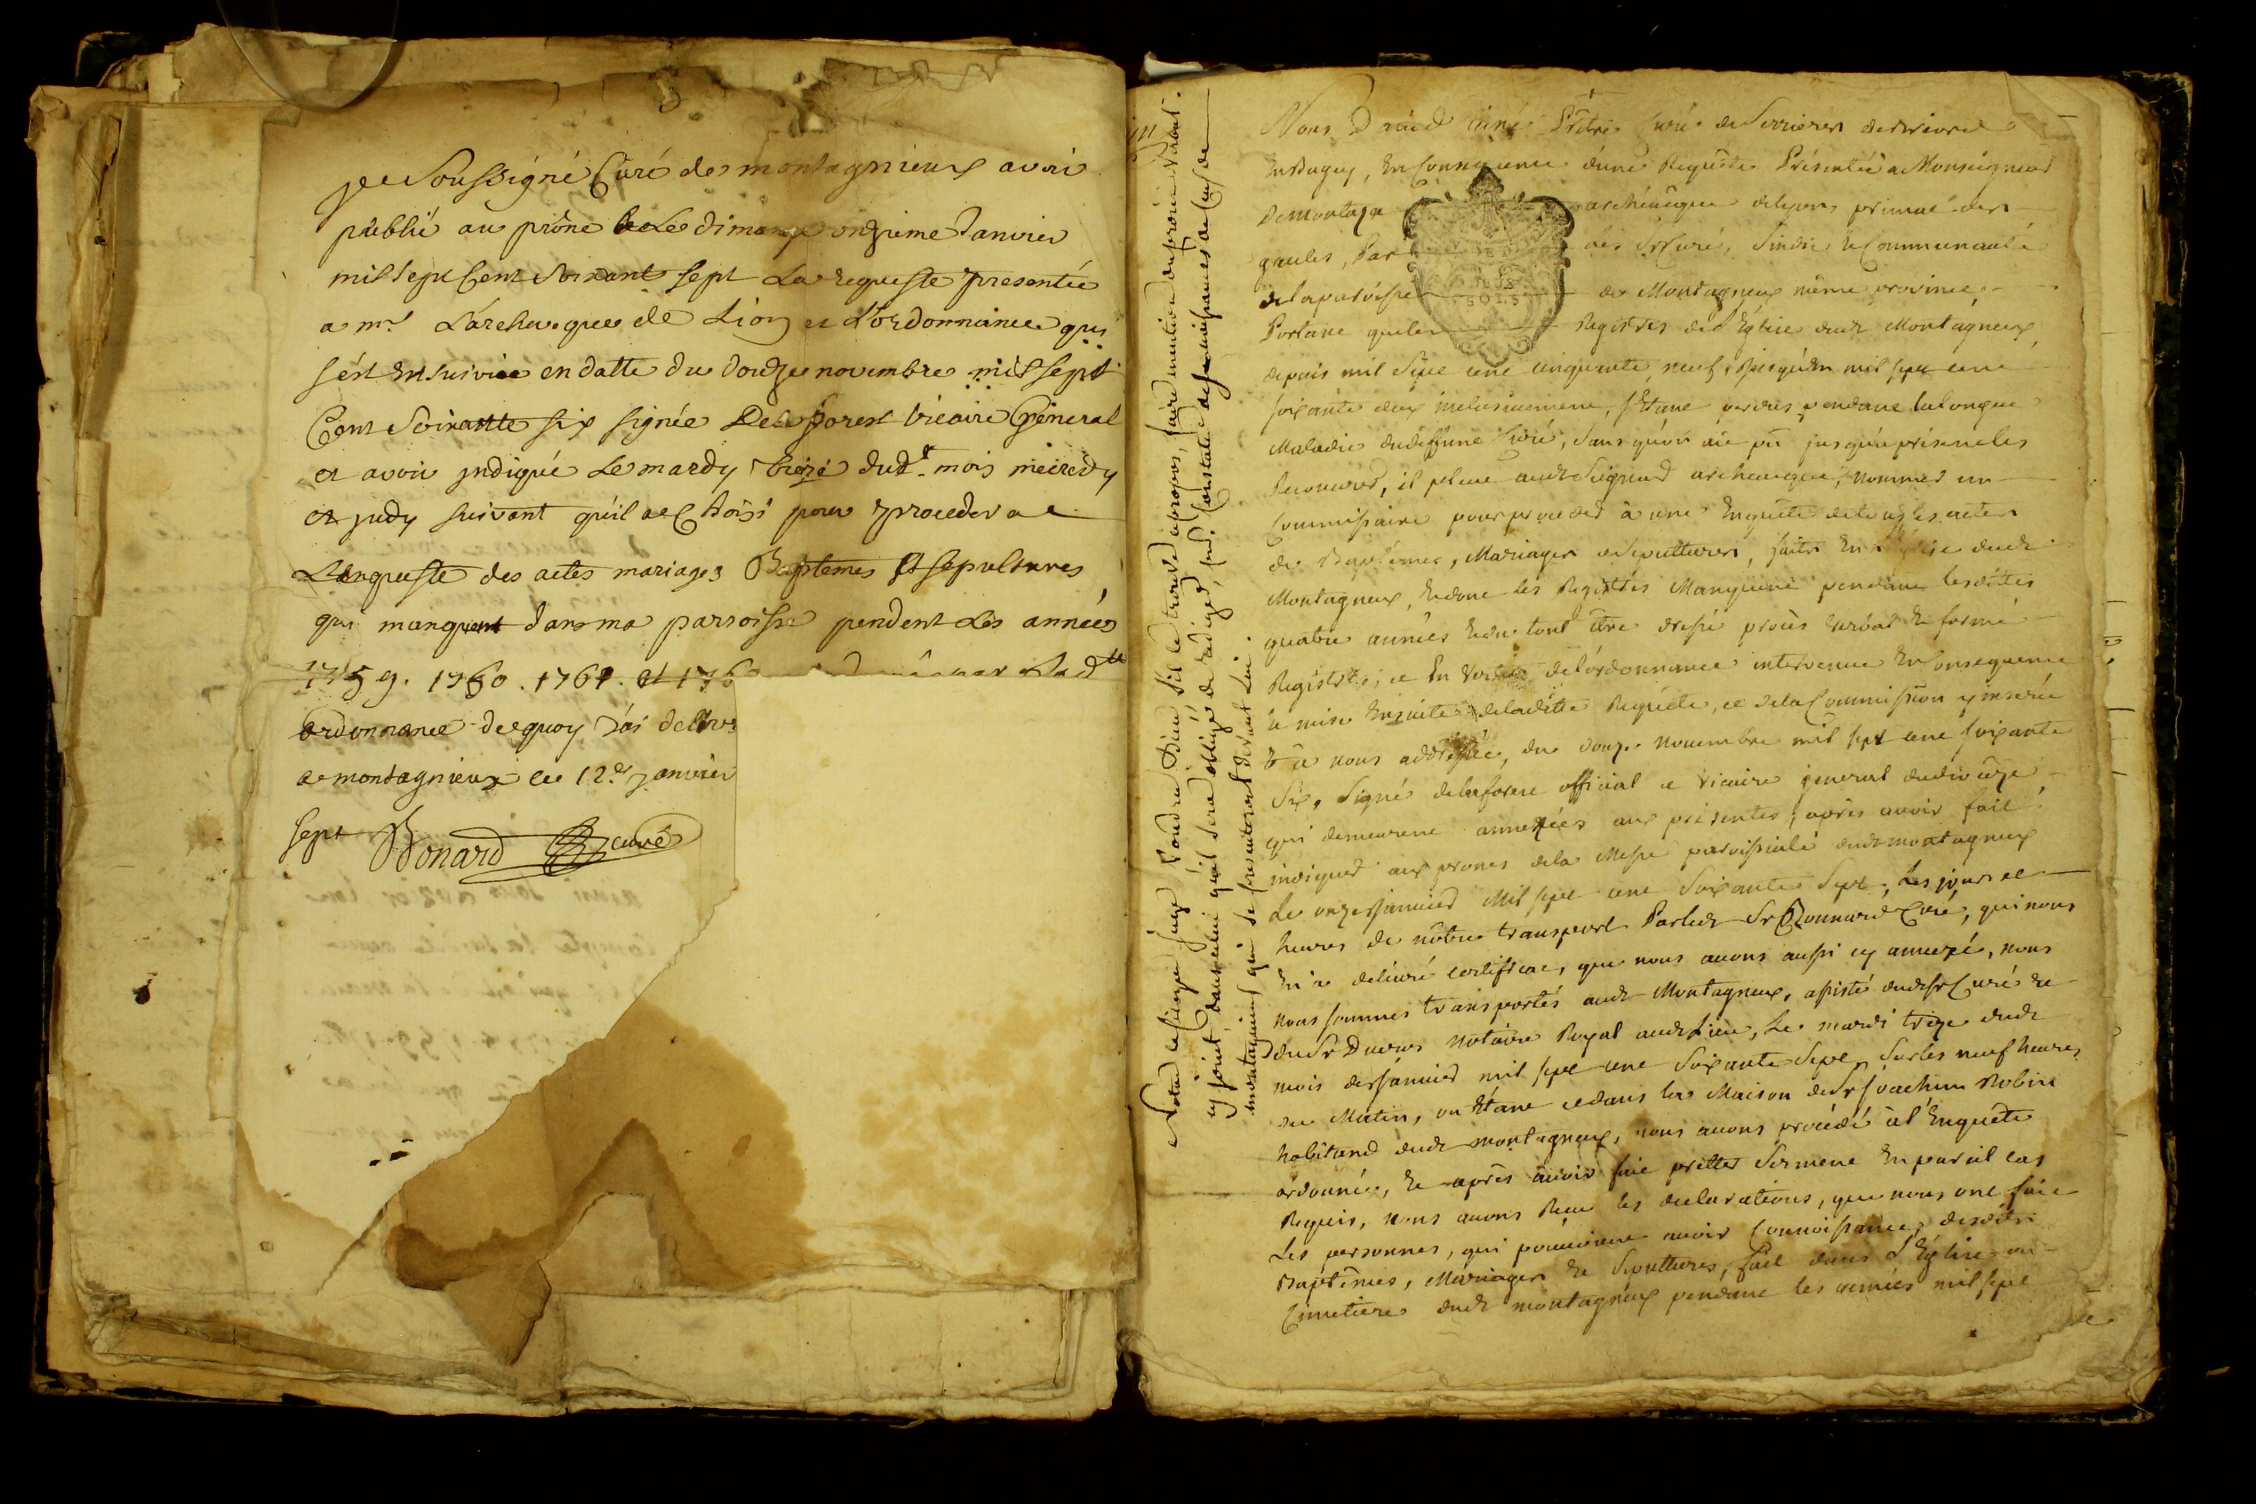 je Soussigné Curé de montagnieux avoir
publié au prône le dimange onzieme Janvier
mil sept Cent Soixant sept La requeste presentée
a mr L'archeveque de Lion et L'ordonnance qui
s'est Ensuivie en datte du douze novembre mil sept
Cent Soixante six signée Delaforest Vicaire Général
et avoir yndiqué Le mardy treize dudt mois mecredy
et judy suivant qu'il a Choisi pour proceder a
L'enqueste des actes mariages Baptemes Et sepultures
qui manquent dans ma parroisse pendent Les années
1759. 1760. 1761. et 176
ordonnance de quoy J'ai deliv
a montagnieux ce 12e janvier
sept Bonard curé
Nous Curé de Serrieres
En Bugey, En Consequence d'une Requête Présentée a Monseigneur
De Montaza archévêque de Lyon, primat des
gaules, Par les Sr Curé, Sindic & Communauté
de la paroisse de Montagneux même province,
Portant que les Registres de L'Eglise dudt Montagneux,
depuis mil Sept cent cinquante neuf, jusqu'En mil sept cent
soixante deux inclusivement, s'Etant perdus pendant la longue
Maladie du deffunt Curé, sans qu'on aie pû jusqu'a présent les
Recouvrer, il plut audt Seigneur archeveque, nommer un
Commissaire pour proceder à une Enquête de tous les actes
de Baptêmes, Mariages & Sepultures, faits En L'Eglise dudt
Montagneux, & dont les Registres Manquent pendant lesdittes
quatre années & du tout être dressé procès verbal & formé
Registre; et En vertu de l'ordonnance intervenue En Consequence
à mise Ensuite de laditte Requête, et de la Commission y inserée
& à nous addressée, du douze novembre mil sept cent soixante
Six, Signé delaforest official et vicaire general dudiocèze
qui demeurent annexées aux présentes, après avoir fait
indiquer aux prones de la Messe paroissiale dudt montagneux
Le onze Janvier Mil sept cent Soixante Sept, Les jour et
heures de nôtre transport Par ledt Sr Bonnard Curé, qui nous
En a delivré certificat, que nous avons aussi cy annexé, nous
nous sommes transportés audt Montagneux, assisté dudt Sr Curé &
du Sr Ducros Notaire Royal audt Lieu, Le mardi treize dudt
mois de Janvier mil sept cent Soixante Sept, Sur les neuf heures
du Matin, où Etant & dans la Maison de Sr Joachim Robin
habitand dudt montagneux, nous avons procédé à l'Enquête
ordonnée, & après avoir fait prêtter Serment En pareil cas
Requis, nous avons Reçu les declarations, que nous ont fait
Les personnes, qui pouvoient avoir Connoissance desdits
Baptêmes, Mariages & Sepultures, fait dans L'Eglise ou
Cimetiere dudt montagneux pendant les années mil sept
Nota. Le Sieur juge Voudra Bien, s'il le trouve apropos, faire mention du procès verbal
cy joint, dans celui qu'il sera obligé de rediger, pr Constater de naissances de ceux de
montagnieux qui se presenteront devant Lui.